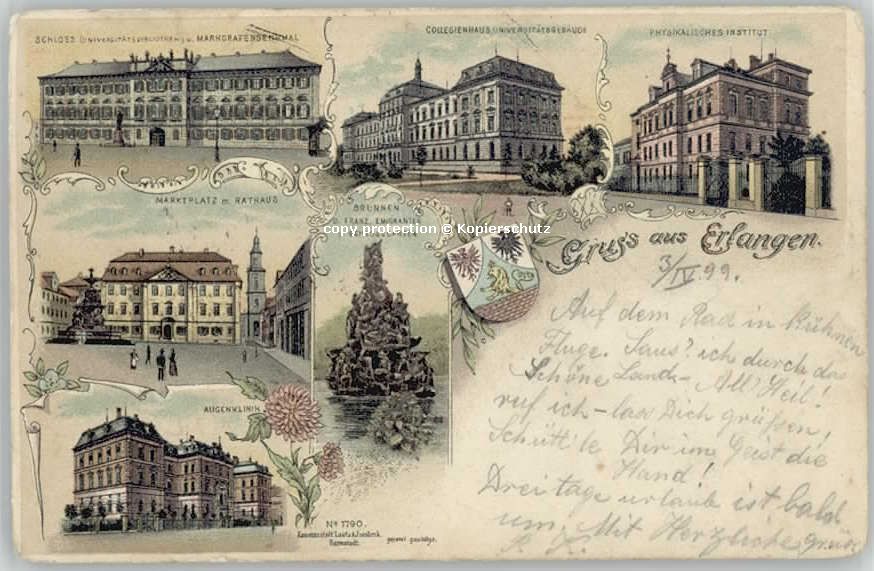 SCHLOSS (UNIVERSITÄTSBIBLIOTHEK) u. MARKGRAFENDENKMAL
COLLEGIENHAUS UNIVERSITÄTSGEBÄUDE
PHYSIKALISCHES INSTITUT
MARKTPLATZ m. RATHAUS
BRUNNEN
D. FRANZ. EMIGRANTEN
copy protection © Kopierschutz
Gruss aus Erlangen.
3/IV. 99.
Auf dem Rad in kühnen
Fluge. Saus' ich durch das
Schöne Land - All' Heil!
ruf ich - lass Dich grüßen,
Schütt'le Dir im Geist die
Hand!
Drei tage urlaub ist bald
um. Mit Herzliche Grüße
AUGENKLINIK
No 7790.
Kunstanstalt Lautz & Isenbeck
Darmstadt.